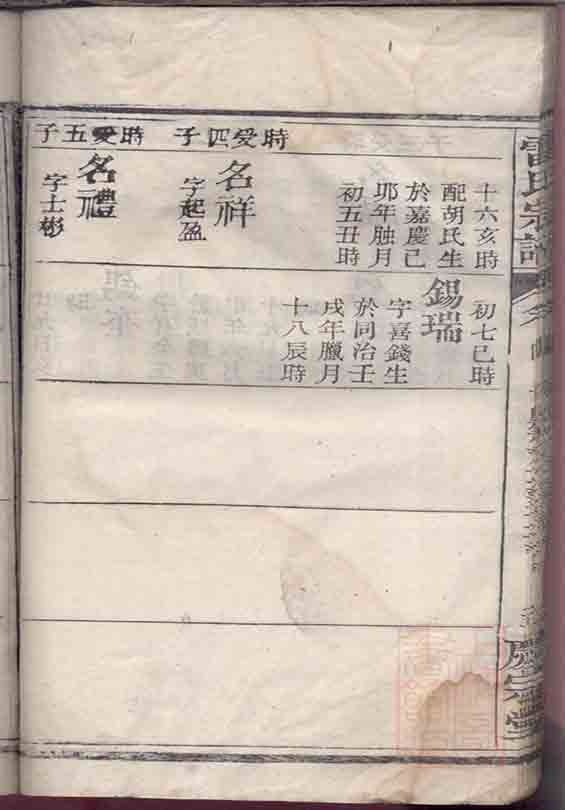 雷氏宗譜
十六亥時
配胡氏生
於嘉慶己
卯年月
初五丑時
時受四子
名祥
字起盈
時受五子
名禮
字士彬
初七巳時
錫瑞
字喜錢生
於同治壬
戌年臘月
十八辰時